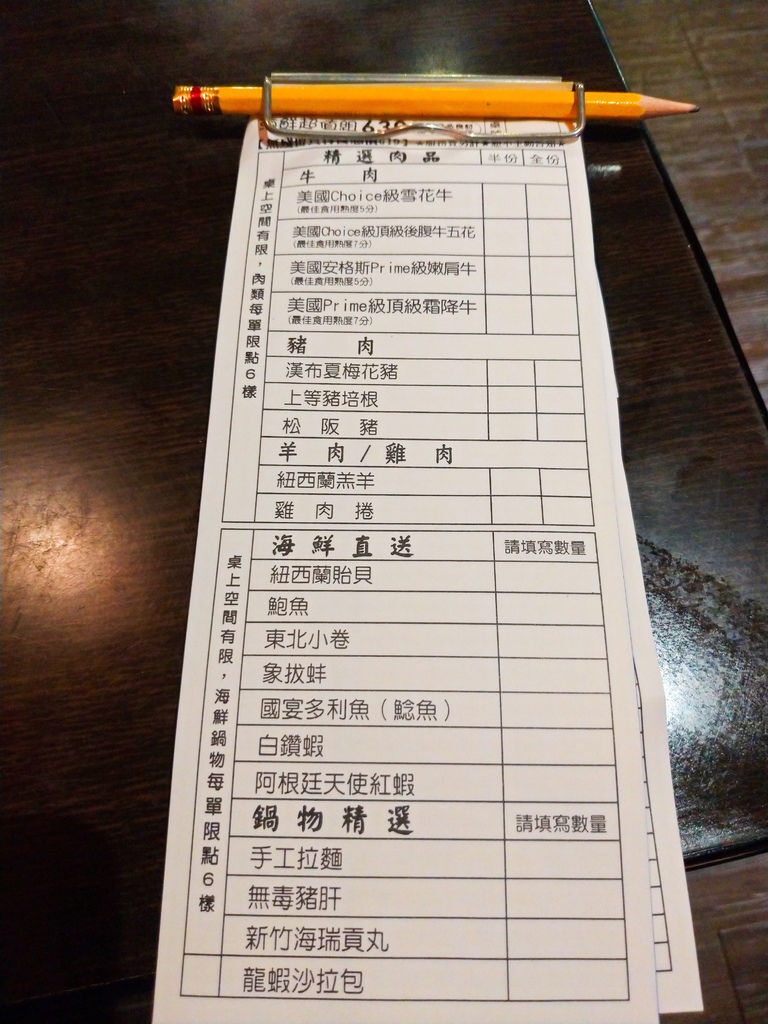 630
精選肉品 半份 全份
牛肉
美國Choice級雪花牛
(最佳食用熟度5分)
美國Choice級頂級後腹牛五花
(最佳食用熟度7分)
美國安格斯Prime級嫩肩牛
(最佳食用熟度5分)
美國Prime級頂級霜降牛
(最佳食用熟度7分)
豬肉
漢布夏梅花豬
上等豬培根
松阪豬
羊肉/雞肉
紐西蘭羔羊
雞肉捲
桌上空間有限，肉類每單限點6樣
海鮮直送 請填寫數量
紐西蘭貽貝
鮑魚
東北小卷
象拔蚌
國宴多利魚(鯰魚)
白鑽蝦
阿根廷天使紅蝦
鍋物精選 請填寫數量
手工拉麵
無毒豬肝
新竹海瑞貢丸
龍蝦沙拉包
桌上空間有限，海鮮鍋物每單限點6樣